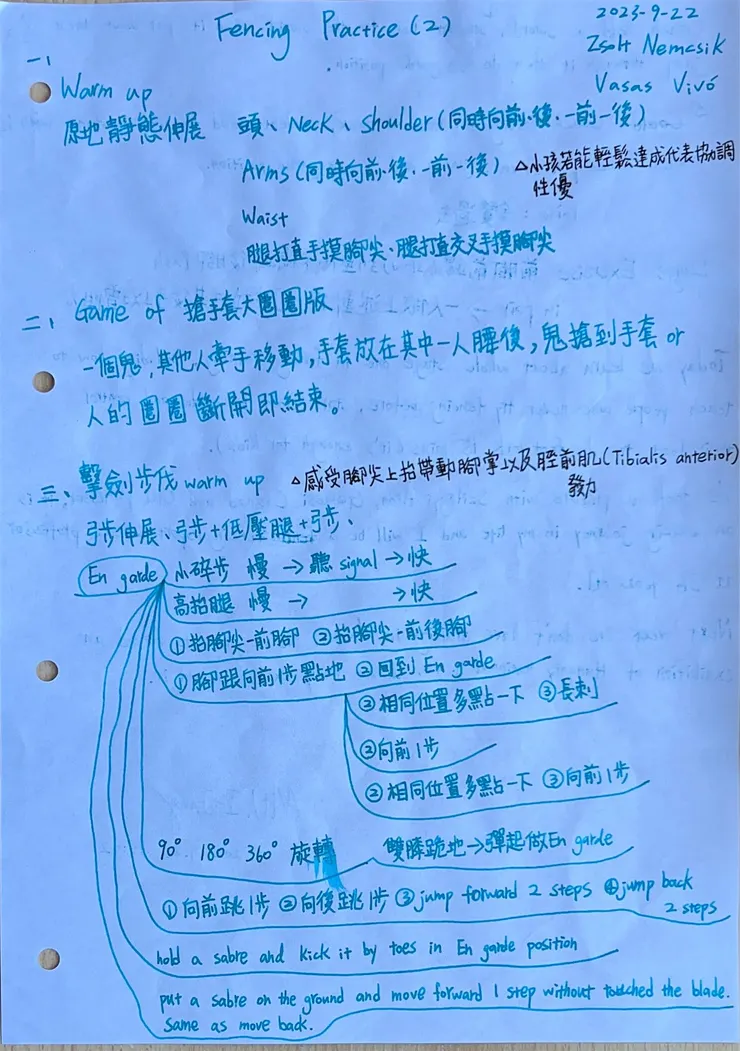 Fencing Practice (2)
2023-9-22
Zsolt Nemcsik
Vasas Vivó
一、
Warm up
原地靜態伸展 頭、Neck、shoulder(同時向前、後、一前一後)
Arms(同時向前、後、一前一後) △小孩若能輕鬆達成代表協調
性優
Waist
腿打直手摸腳尖、腿打直交叉手摸腳尖
二、Game of 搶手套大圈圈版
一個鬼,其他人牽手移動,手套放在其中一人腰後,鬼搶到手套 or
人的圈圈斷開即結束。
三、擊劍步伐 warm up △感受腳尖上抬帶動腳掌以及脛前肌(Tibialis anterior)
發力
弓步伸展、弓步+低壓腿+弓步、
En garde 小碎步 慢 → 聽 signal → 快
高抬腿 慢 → → 快
①抬腳尖-前腳 ②抬腳尖-前後腳
①腳跟向前1步點地 ②回到 En garde
②相同位置多點一下 ③長刺
②向前1步
②相同位置多點一下 ③向前1步
90° 180° 360° 旋轉 雙膝跪地→彈起做En garde
①向前跳1步 ②向後跳1步 ③jump forward 2 steps ④jump back
2 steps
hold a sabre and kick it by toes in En garde position
put a sabre on the ground and move forward 1 step without touched the blade.
Same as move back.